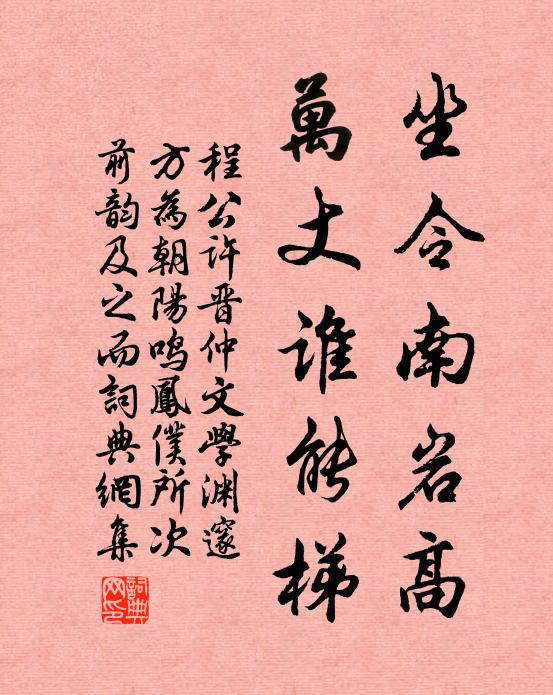 坐令南岩高
萬丈誰能梯
程公許晋仲文學淵邃
方為朝陽鳴鳳僕所次
前韵及之而詞典網集
詞典網印